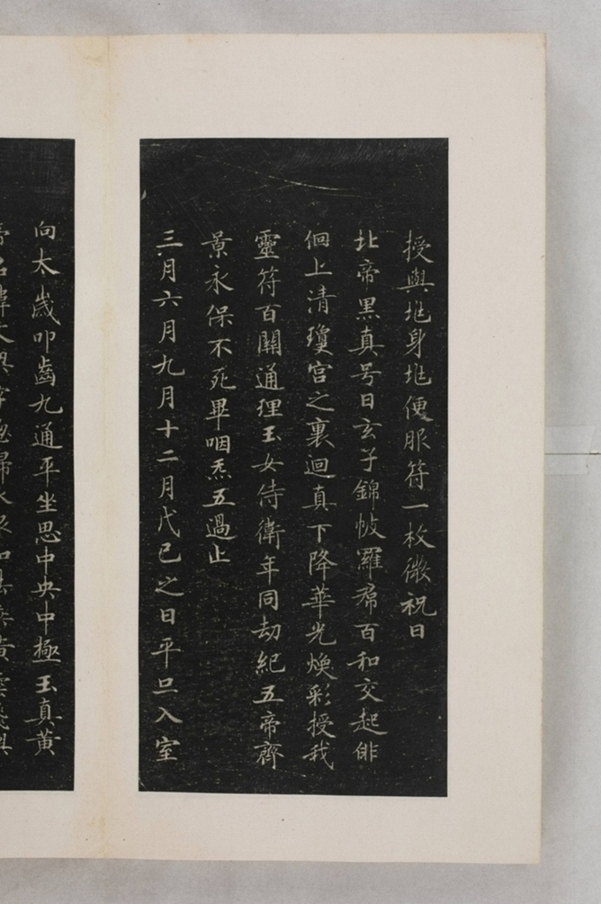 授與地身地便服符一枚微祝曰
北帝黑真号曰玄子錦帔羅帬百和交起俳
佪上清瓊宮之裏迴真下降華光煥彩授我
靈符百關通理玉女侍衛年同劫紀五帝齊
景永保不死畢咽炁五過止
三月六月九月十二月戊己之日平旦入室
向太歲叩齒九通平坐思中央中極玉真黃